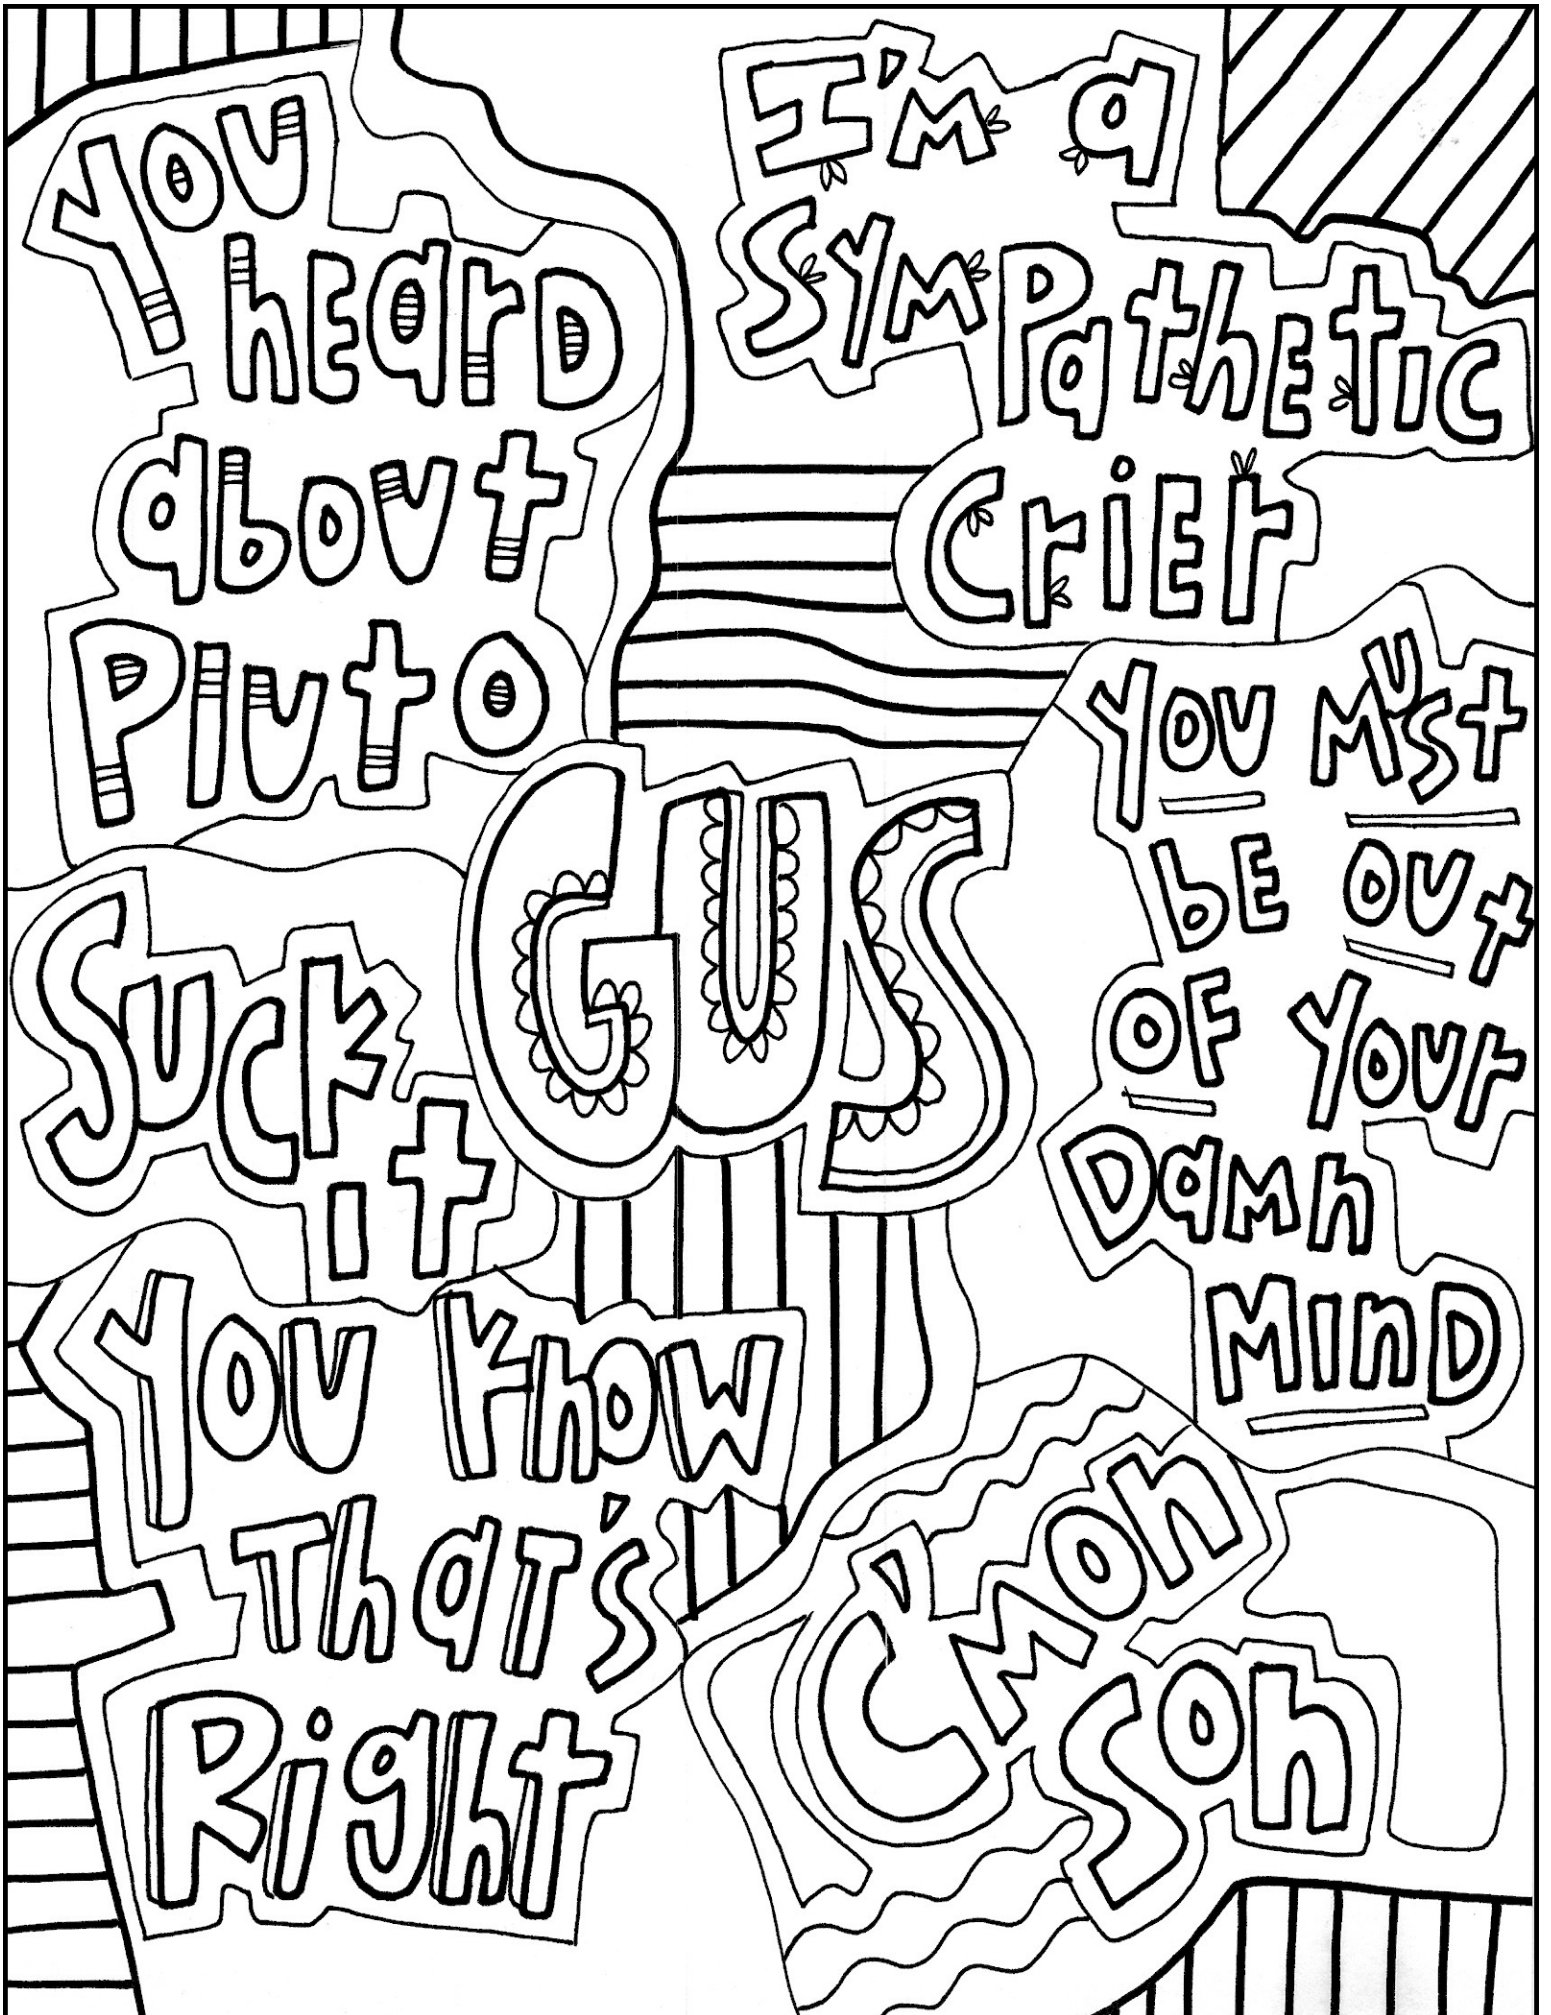 You
heard
about
Pluto
I'm a
Sympathetic
Crier
GUS
You must
be out
of your
damn
mind
Suck
it
You know
that's
Right
C'mon
Son